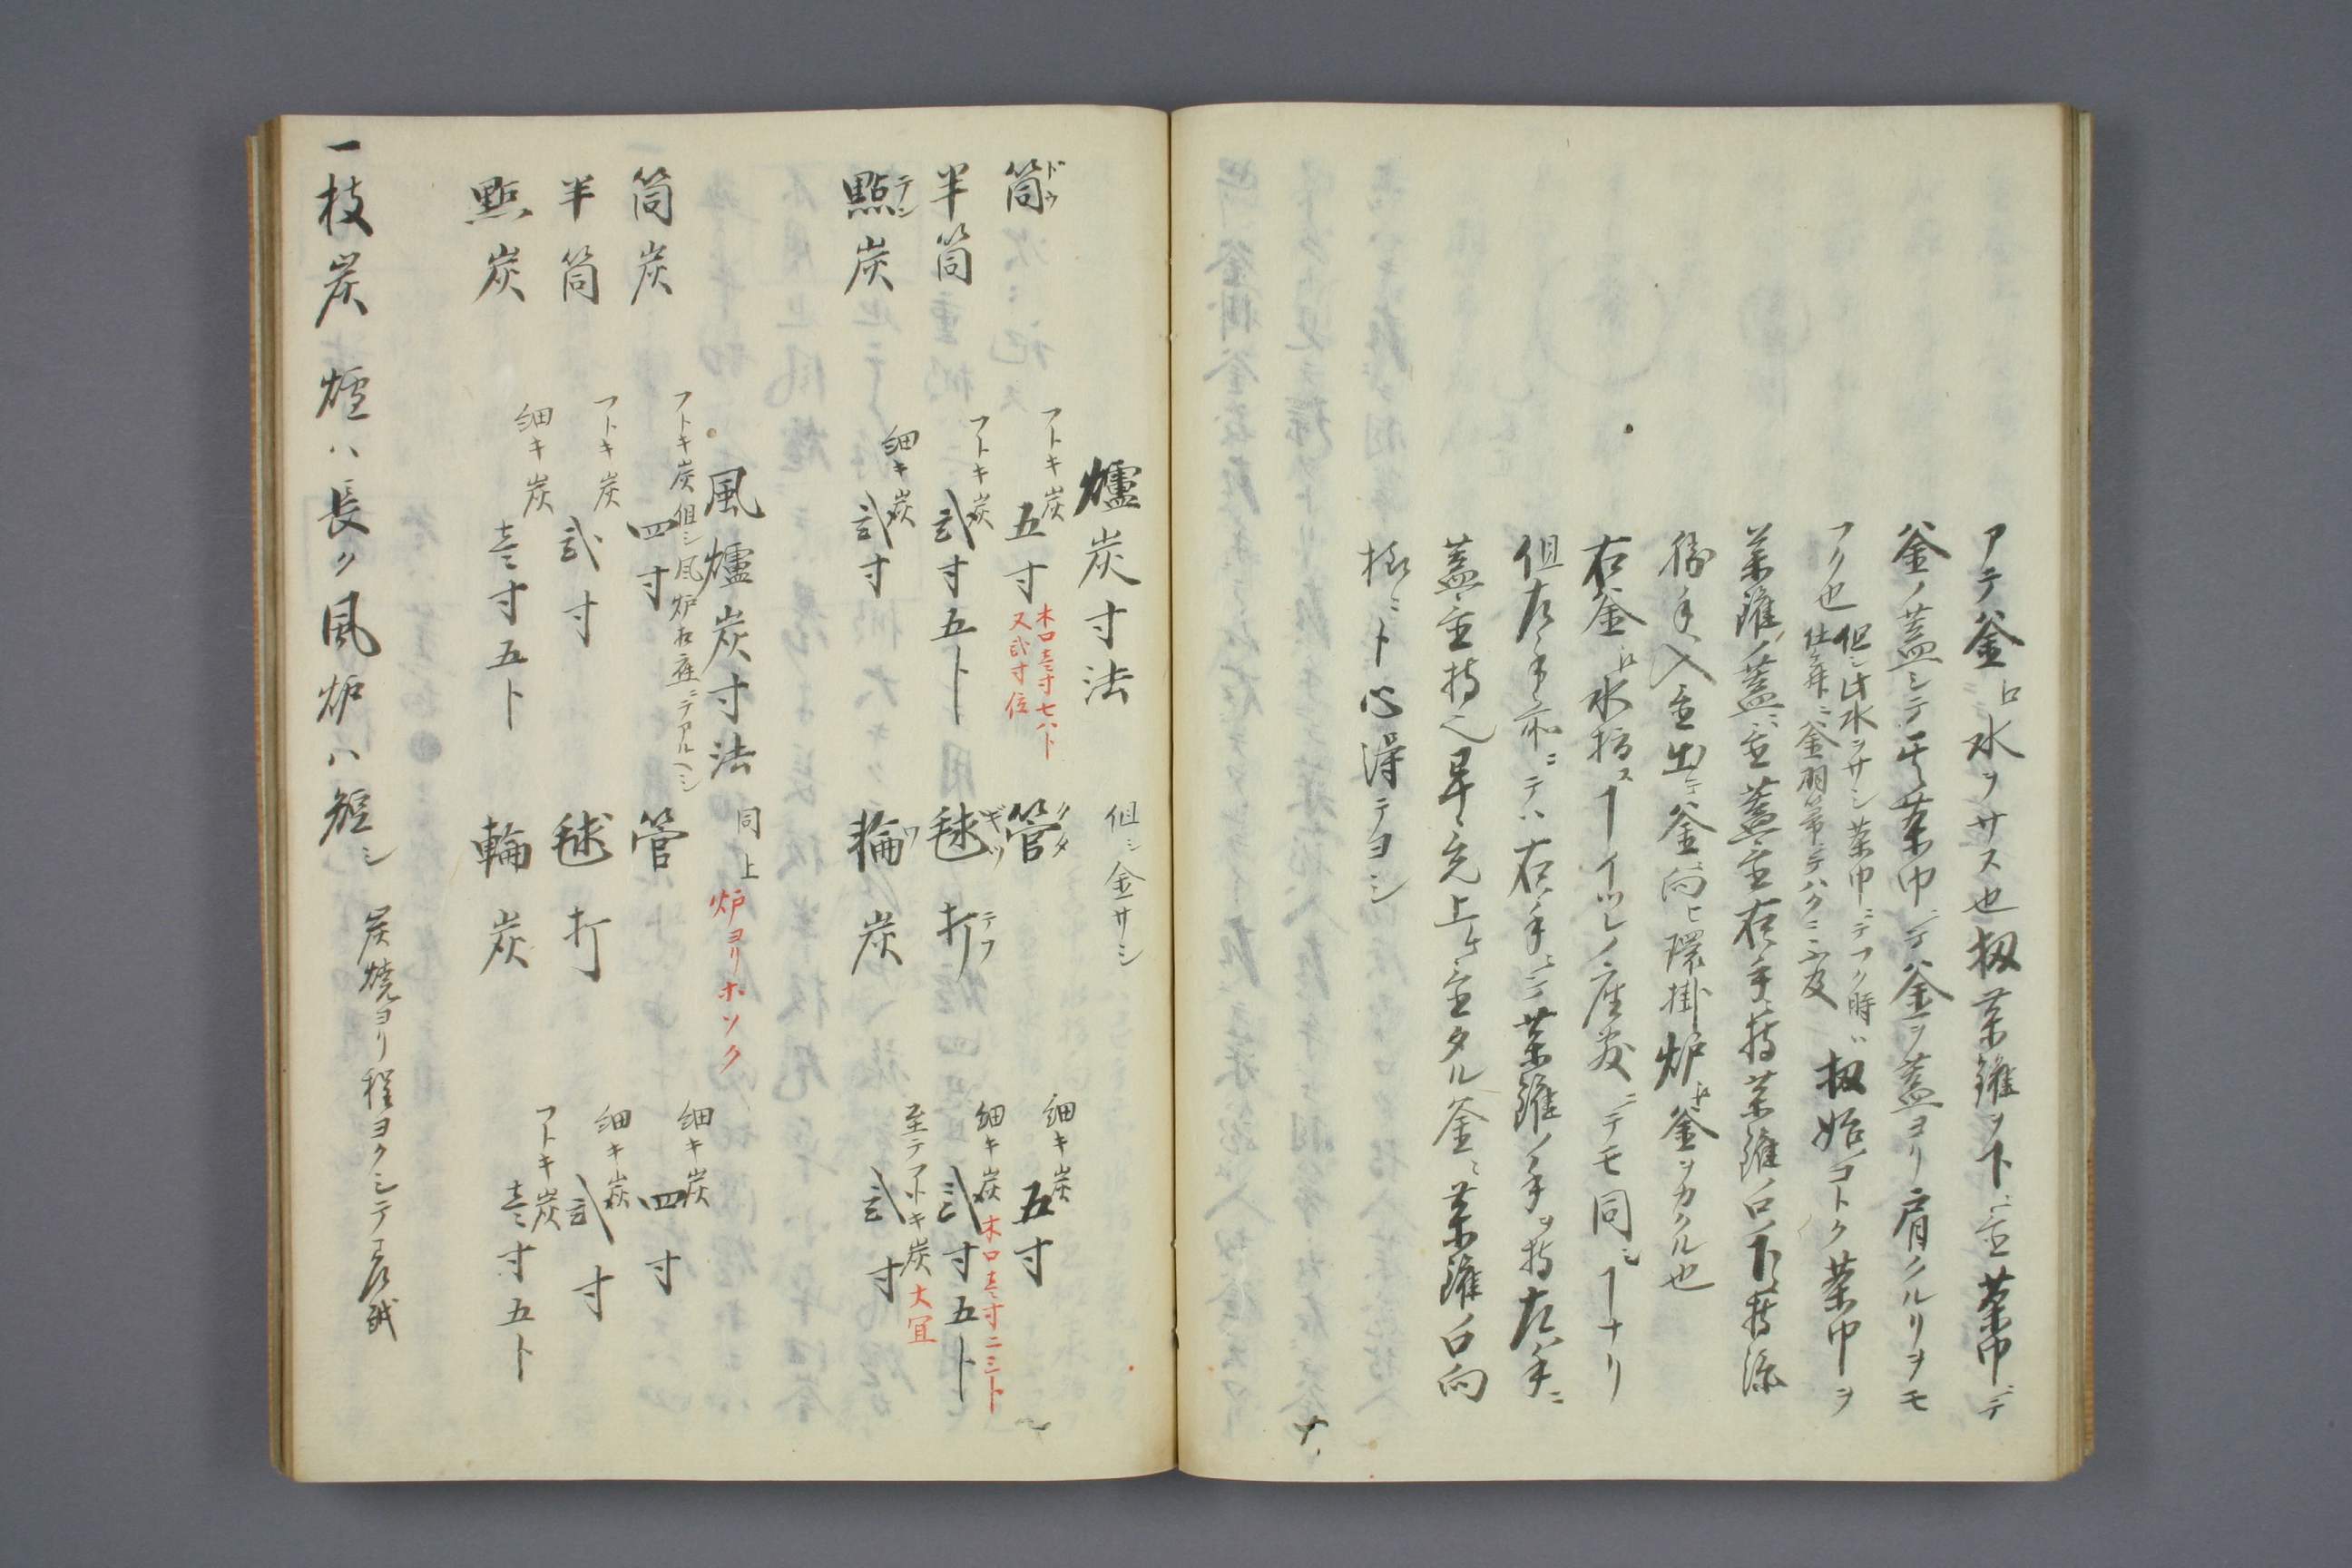 アテ釜ニ口水ヲサス也扨茶鑵ヲ下ニ置茶巾ニテ
釜ノ蓋シテ其茶巾ニテ釜ヲ蓋ヨリ肩クルリヲモ
フク也
但シ此水ヲサシ茶巾ニテフク時ハ
仕舞ニ釜羽箒ニテハクニ不及
扨始ノコトク茶巾ヲ
茶鑵ノ蓋ニ置蓋置右ノ手ニ持茶鑵ノ口ノ下ニ持添
勝手ヘ入置出テ釜ニ向ヒ環掛炉ヘ釜ヲカクル也
右釜ニ口水指スヿイツレノ座敷ニテモ同シヿナリ
但左手前ニテハ右ノ手ニテ茶鑵ノ手ヲ持左ノ手ニ
蓋置持也早ク先上ケ置タル釜ニ茶鑵ノ口向
様ニト心得テヨシ
爐炭寸法
但シ金サシ
筒 ドウ
フトキ炭
五寸
木口壱寸七八ト
又弐寸位
管 クタ
細キ炭
五寸
半筒
フトキ炭
弐寸五ト
毬打 ギツテフ
細キ炭
木口壱寸二三ト
弐寸五ト
點炭 テン
細キ炭
弐寸
輪炭 ワ
至テフトキ炭
大宜
弐寸
風爐炭寸法
同上
炉ヨリホソク
筒炭
フトキ炭但シ風炉右座ニテアルヘシ
四寸
管
細キ炭
四寸
半筒
フトキ炭
弐寸
毬打
細キ炭
弐寸
點炭
細キ炭
壱寸五ト
輪炭
フトキ炭
壱寸五ト
一枝炭爐ハ長ク風炉ハ短シ
炭焼ヨリ程ヨクシテ